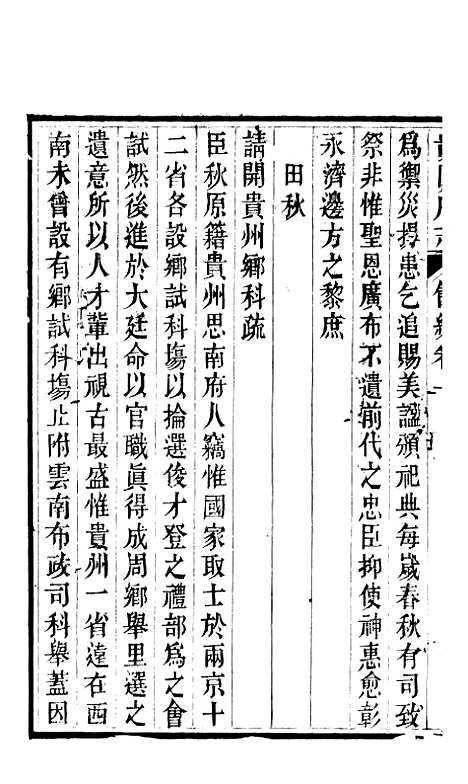 爲禦災捍患乞追賜美謚頒祀典每歲春秋有司致
祭非惟聖恩廣布不遺前代之忠臣抑使神惠愈彰
永濟邊方之黎庶
田秋
請開貴州鄉科疏
臣秋原籍貴州思南府人竊惟國家取士於兩京十
二省各設鄉試科塲以掄選俊才登之禮部爲之會
試然後進於大廷命以官職眞得成周鄉舉里選之
遺意所以人才輩出視古最盛惟貴州一省遠在西
南未曾設有鄉試科塲止附雲南布政司科舉蓋因